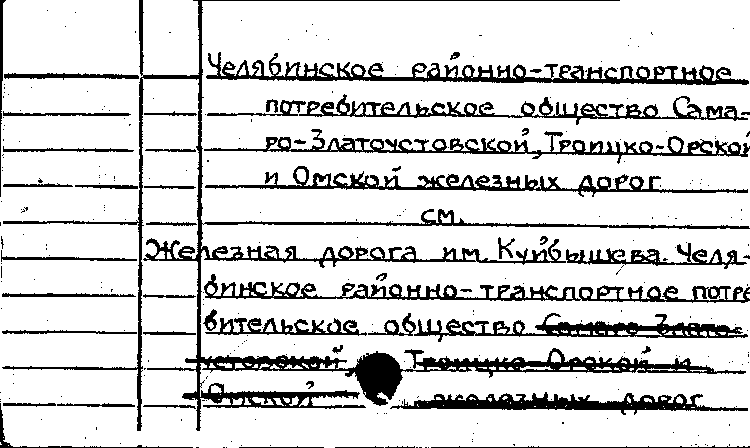 Челябинское районно-транспортное
потребительское общество Сама-
ро-Златоустовской, Троицко-Орской
и Омской железных дорог
см.
Железная дорога им. Куйбышева. Челя-
бинское районно-транспортное потре
бительское общество Самаро-Злато-
устовской, Троицко-Орской и
Омской железных дорог